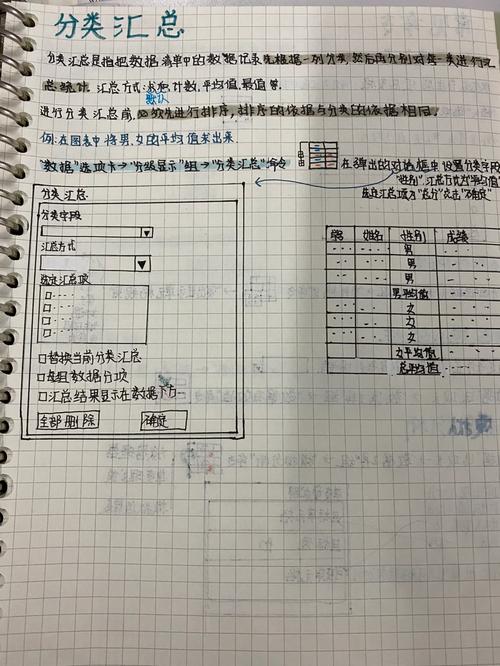 分类汇总
分类汇总是指把数据清单中的数据记录先根据一列分类,然后再分别对每一类进行汇
总统计. 汇总方式:求和,计数,平均值,最值等.
默认
进行分类汇总前,必须先进行排序,排序的依据与分类的依据相同.
例:在图表中将男,女的平均值求出来.
"数据"选项卡→"分级显示"组→"分类汇总"命令 在弹出的对话框中设置分类字段
"性别",汇总方式为"平均值"
选定汇总项为"总分"点击"确定"
分类汇总
分类字段
汇总方式
选定汇总项
□替换当前分类汇总
□每组数据分项
□汇总结果显示在数据下方
全部删除 确定
学号 姓名 性别 成绩
男
男
男
男平均值
女
女
女
女平均值
总平均值